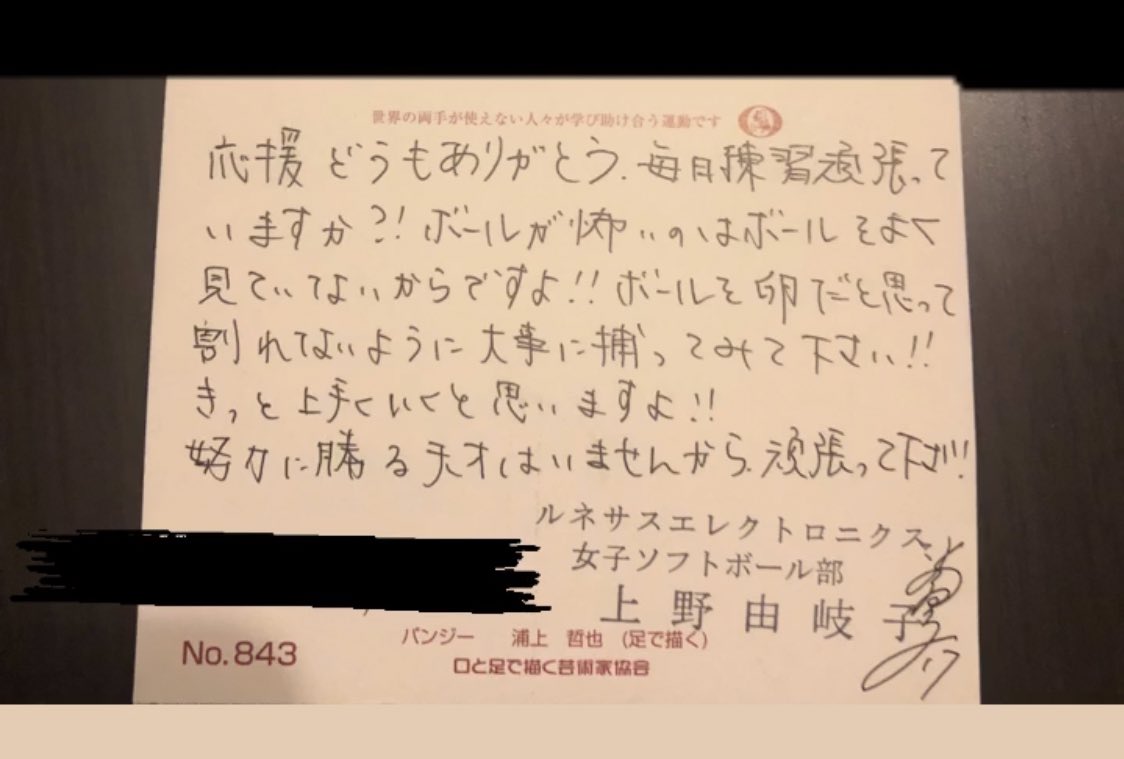 世界の両手が使えない人々が学び助け合う運動です
応援どうもありがとう。毎日練習頑張って
いますか?!ボールが怖いのはボールをよく
見ていてないからですよ!!ボールを卵だと思って
割れてないように大事に捕ってみて下さい!!
きっと上手くいくと思いますよ!!
努力に勝る天才はいませんから、頑張って下さい!
ルネサスエレクトロニクス
女子ソフトボール部
上野由岐子
17
パンジー 浦上 哲也 (足で描く)
No.843
口と足で描く芸術家協会